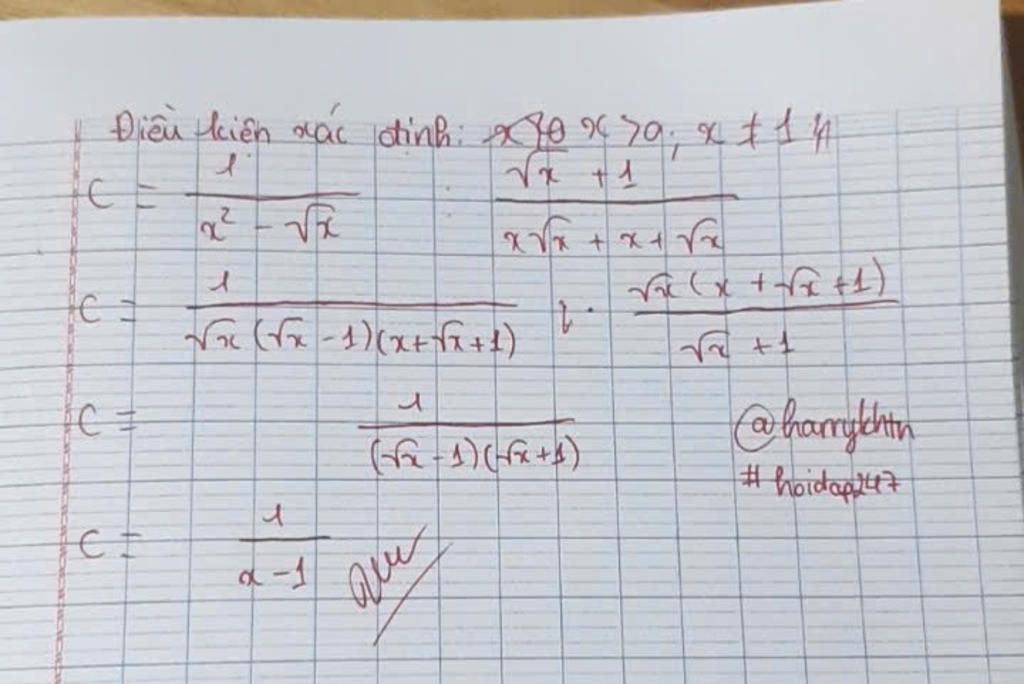 Điều kiện xác định: x > 0; x ≠ 1
C = 1/(x² - √x) : (√x + 1)/(x√x + x + √x)
C = 1/(√x(√x - 1)(x + √x + 1)) · (√x(x + √x + 1))/(√x + 1)
C = 1/((√x - 1)(√x + 1))
@harrykhtn
# hoidap247
C = 1/(x - 1)